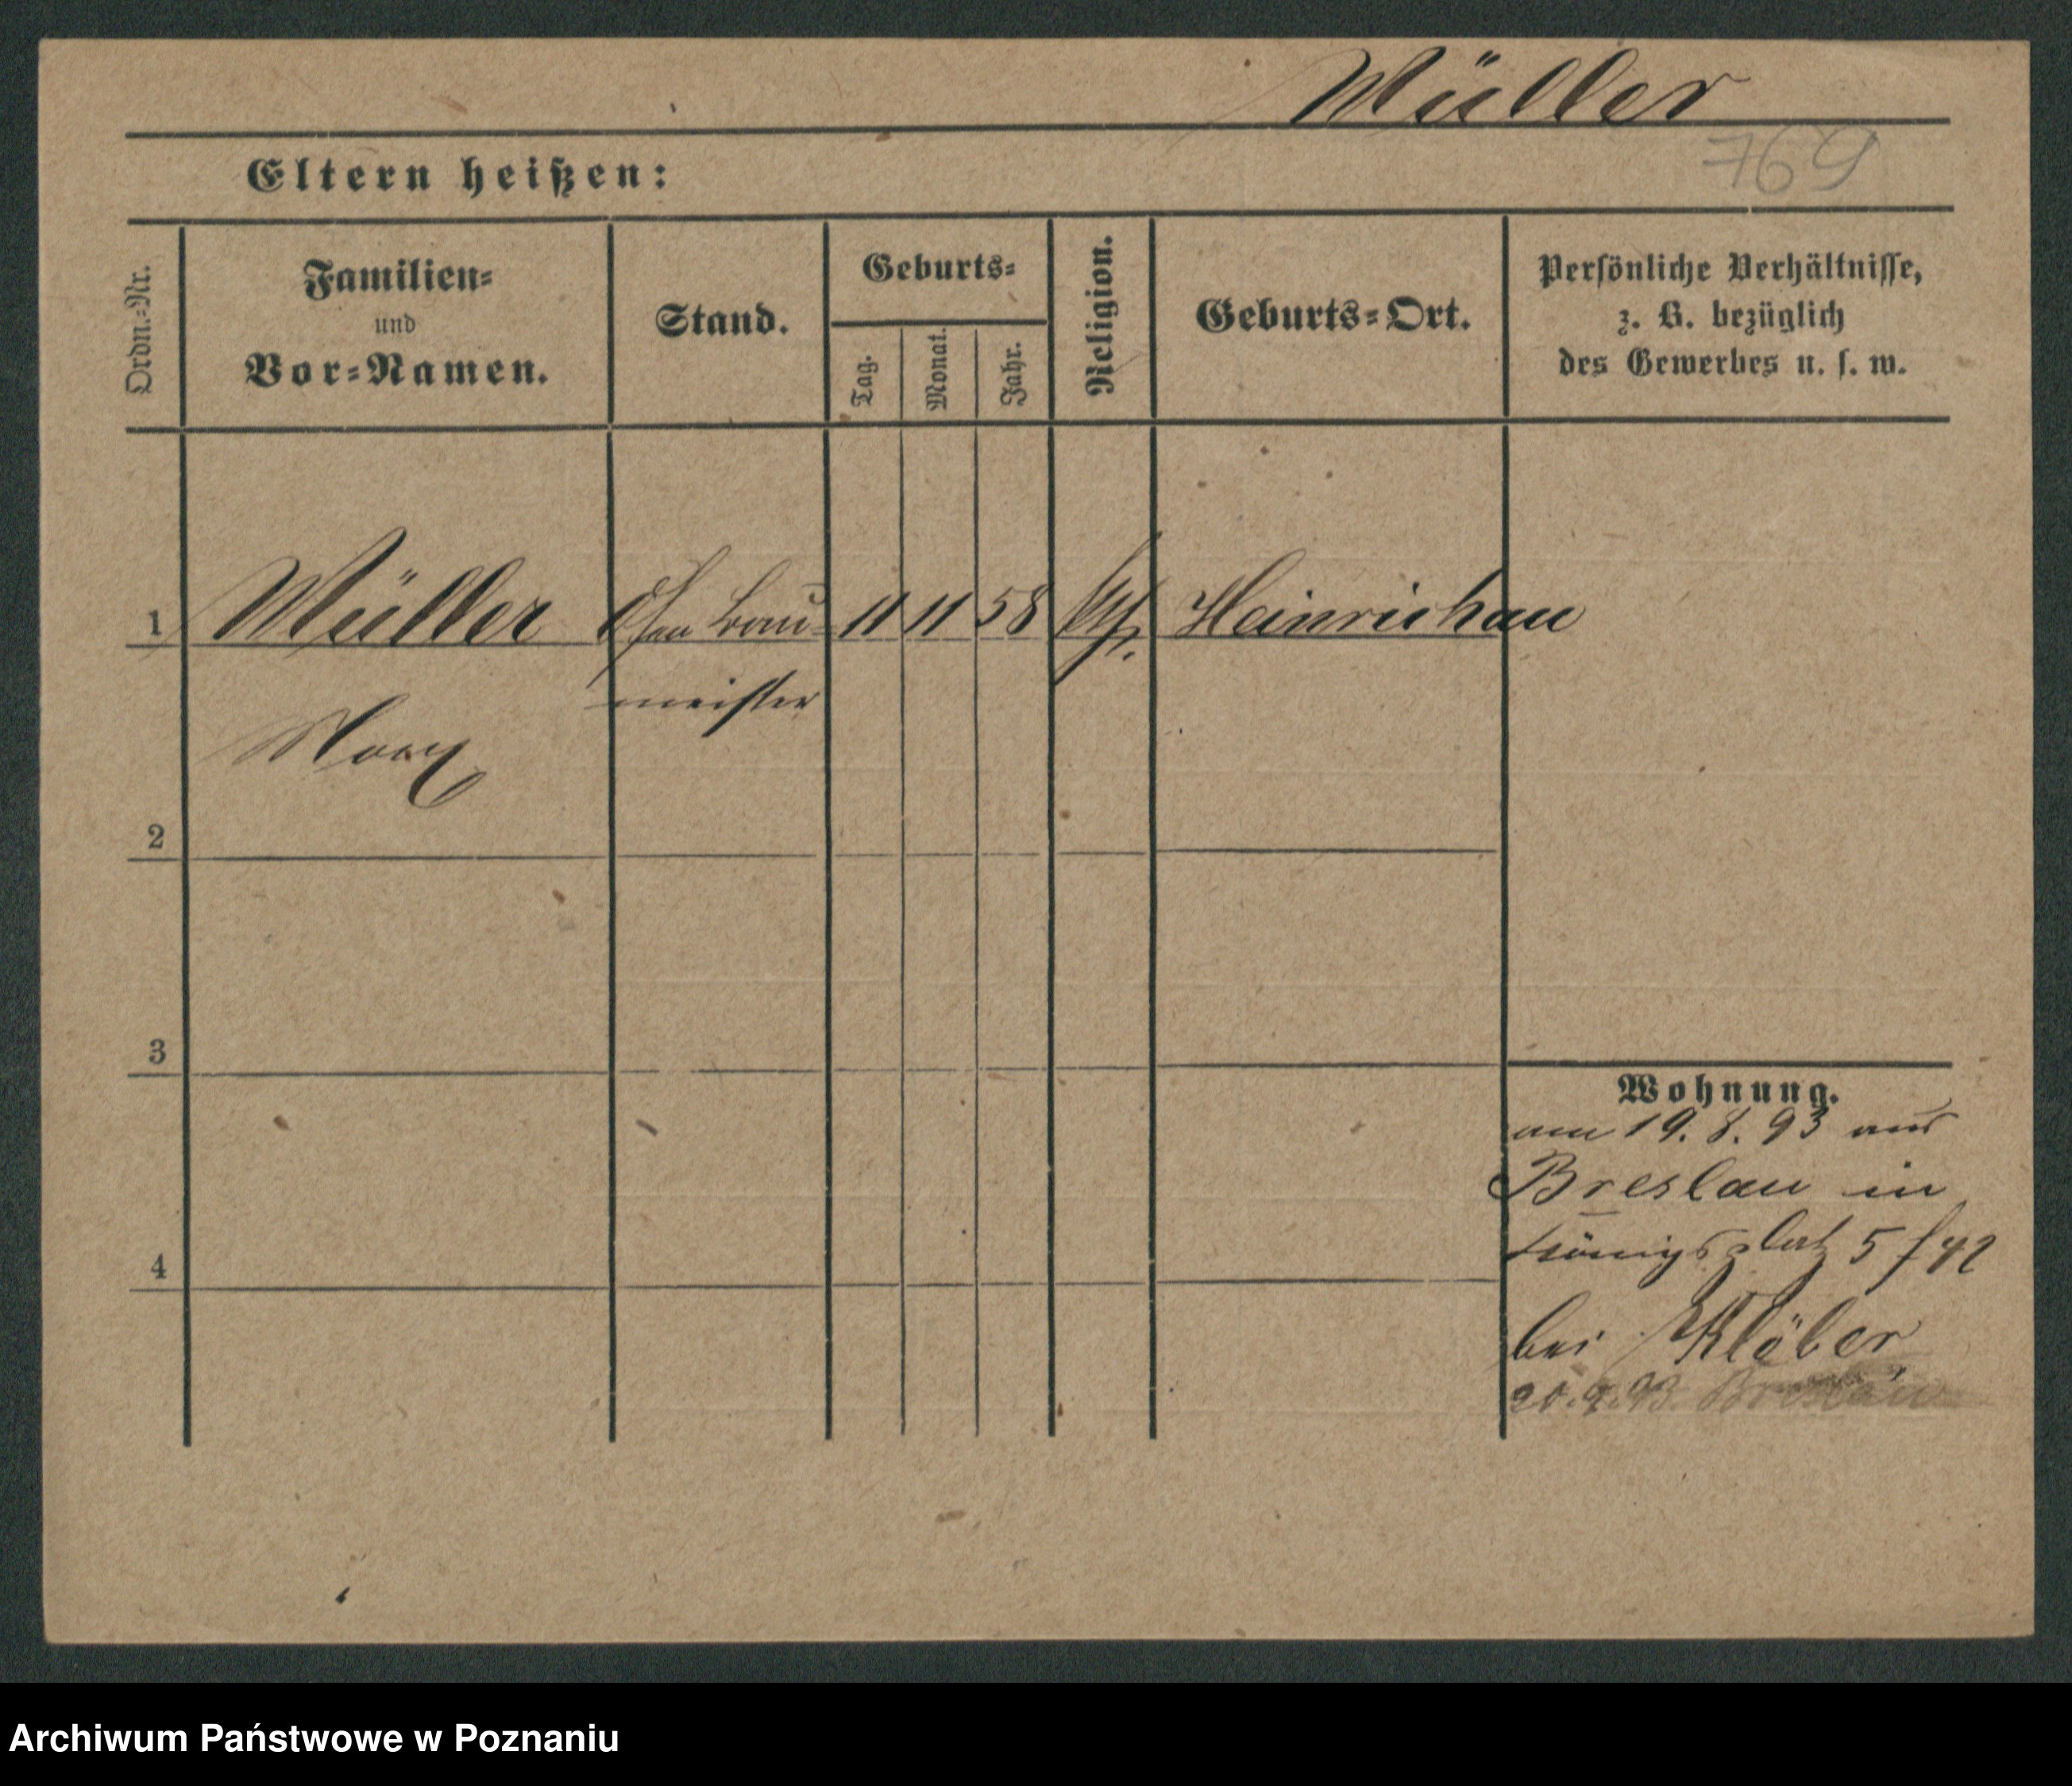 Müller
769
Eltern heißen:
Ordn.-Nr.
Familien-
und
Vor-Namen.
Stand.
Geburts-
Tag.
Monat.
Jahr.
Religion.
Geburts-Ort.
Persönliche Verhältnisse,
z. B. bezüglich
des Gewerbes u. s. w.
1 Müller Ofenbau- 11 11 58 Heinrichau
meister
Max
2
3
4
Wohnung.
am 19. 8. 93 aus
Breslau in
Königsplatz 5
bei Klöber
20.9.93. Breslau